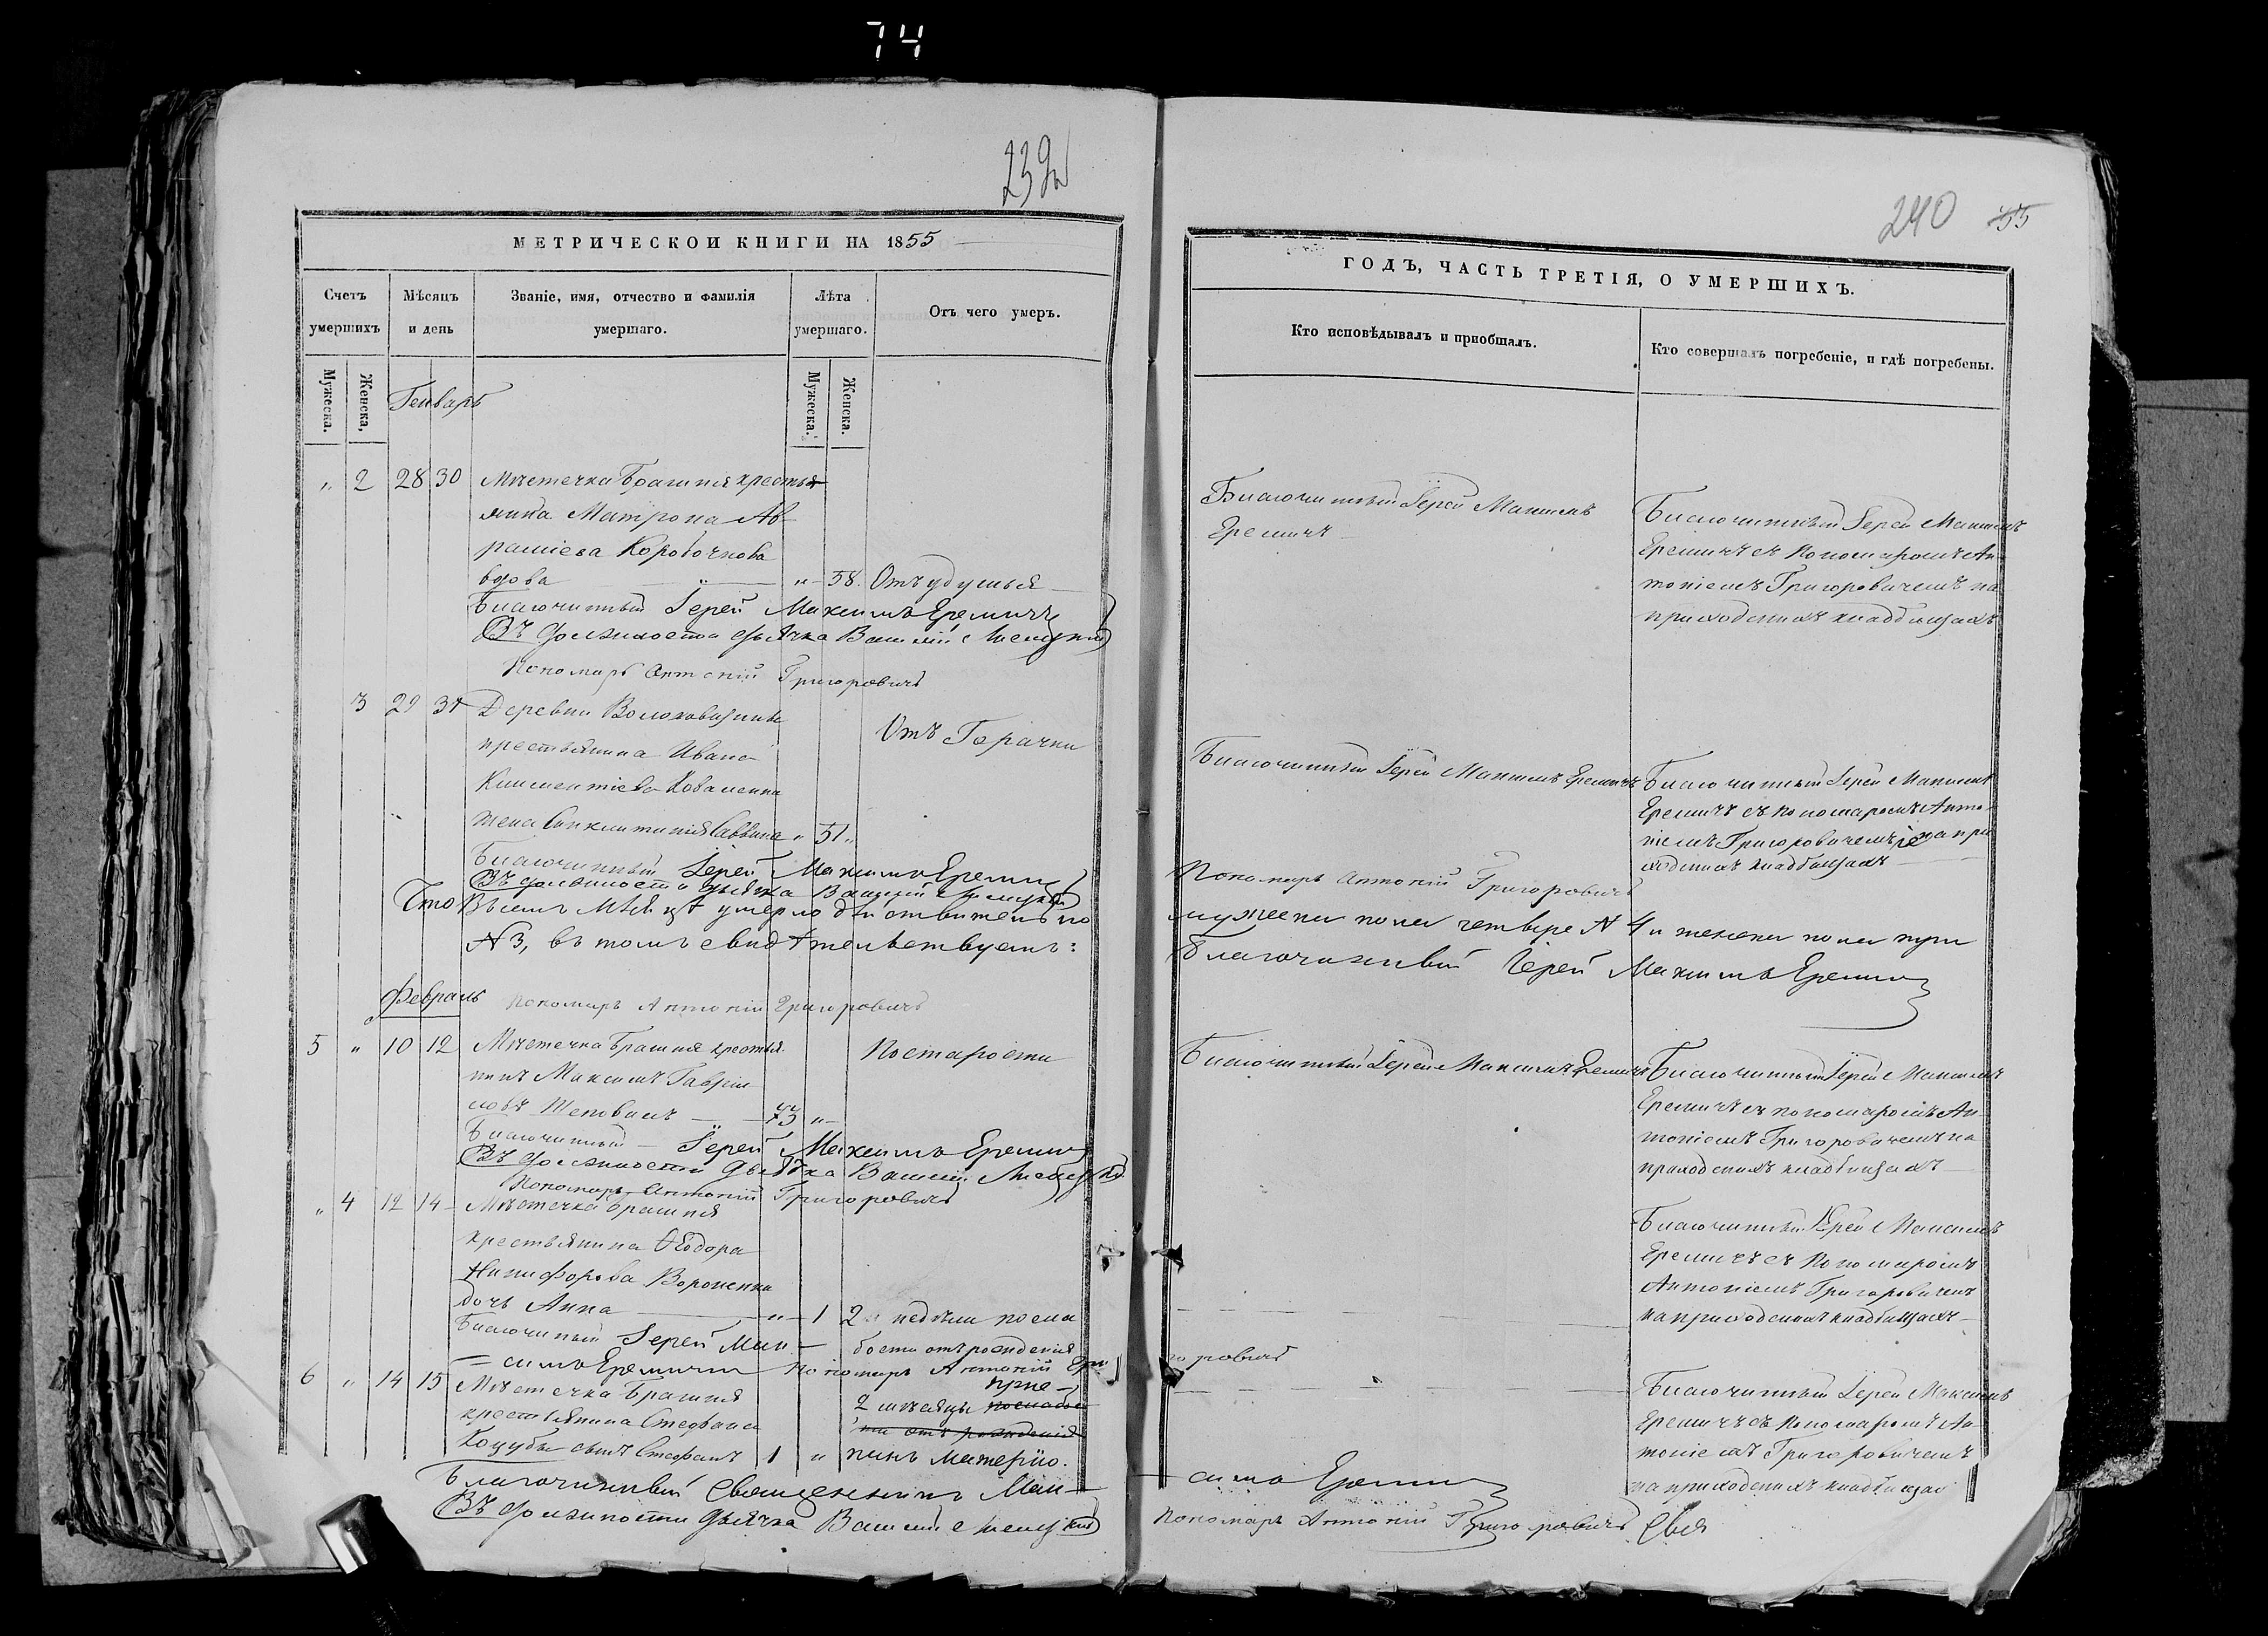 74
239
МЕТРИЧЕСКОЙ КНИГИ НА 1855
Счетъ умершихъ
Мѣсяцъ и день
Званіе, имя, отчество и фамилія умершаго.
Лѣта умершаго.
Отъ чего умеръ.
Мужеска.
Женска,
Мужеска.
Женска.
Генварь
„ 2 28 30 Мѣстечка Брагиня крестья
янка Матрона Ав
рамієва Коробочкова
вдова „ 58. Отъ удушья
Благочинный Іерей Максимъ Еремичъ
Въ должности дьячка Василій
Пономарь Антоній Григоровичъ
3 29 31 Деревни
крестьянина Ивана
Климентіева Коваленка
жена Синклитикія Саввина „ 51 „
Отъ Горачки
Благочинный Іерей Максимъ Еремичъ
Въ должности дьячка Василій
Что Въ семъ Мѣсяцѣ умерло действительно
№ 3, въ томъ свидѣтельствуемъ:
Февраль Пономарь Антоній Григоровичъ
5 „ 10 12 Мѣстечка Брагиня крестья
нинъ Максимъ Гаврии
ловъ Шаповалъ 73 „
По старости
Благочинный Іерей Максимъ Еремичъ
Въ должности Дьячка Василій
Пономарь Антоній Григоровичъ
„ 4 12 14 Мѣстечка Брагиня
крестьянина Ѳеодора
Никифорова Вороненка
дочь Анна „ 1 2 недѣли по сла
бости отъ рожденія
Благочинный Іерей Мак
симъ Еремичъ Пономарь Антоній Гри
6 „ 14 15 Мѣстечка Брагиня
крестьянина Стефана
Коцубы сынъ Стефанъ 1 „
2 мѣсяцы по слабос
ти отъ рожденія
Благочинный Священникъ Мак
Въ должности Дьячка Василій
240 55
ГОДЪ, ЧАСТЬ ТРЕТІЯ, О УМЕРШИХЪ.
Кто исповѣдывалъ и пріобщалъ.
Кто совершалъ погребеніе, и гдѣ погребены.
Благочинный Іерей Максимъ
Еремичъ
Благочинный Іерей Максимъ
Еремичъ съ Пономаромъ Ан
тоніемъ Григоровичемъ на
приходскихъ кладбищахъ
Благочинный Іерей Максимъ Еремичъ
Благочинный Іерей Максимъ
Еремичъ съ пономаромъ Анто
ніемъ Григоровичемъ на при
ходскихъ кладбищахъ
Пономарь Антоній Григоровичъ
мужеска пола четыре № 4 и женска пола три
Благочинный Іерей Максимъ Еремичъ
Благочинный Іерей Максимъ Еремичъ
Благочинный Іерей Максимъ
Еремичъ съ пономаромъ Ан
тоніемъ Григоровичемъ на
приходскихъ кладбищахъ
Благочинный Іерей Максимъ
Еремичъ съ Пономаромъ
Антоніемъ Григоровичемъ
на приходскихъ кладбищахъ
горовичъ
Благочинный Іерей Максимъ
Еремичъ съ Пономаромъ Ан
тоніемъ Григоровичемъ
на приходскихъ кладбищах
симъ Еремичъ
Пономарь Антоній Григоровичъ